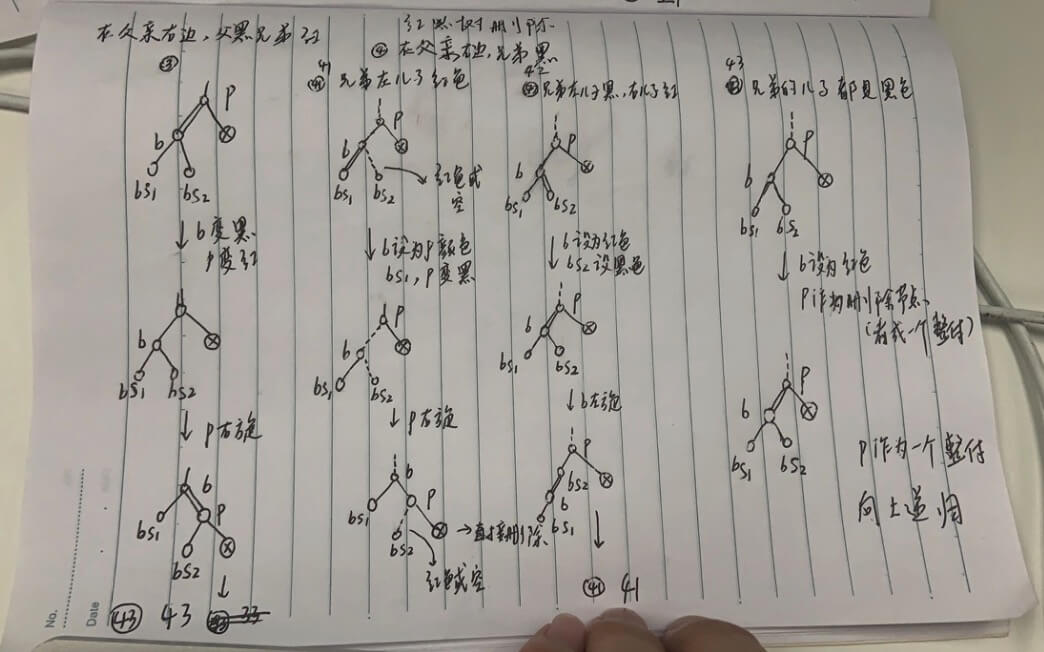 红黑树删除
在父亲右边,父黑兄弟红
③
p
b
bs1
bs2
b变黑
p变红
b
bs1
bs2
p右旋
b
bs1
p
bs2
43 43
④ 在父亲右边,兄弟黑
41
兄弟左儿子红色
p
b
bs1
bs2
红色或
空
b设为p颜色
bs1, p变黑
p
b
bs1
bs2
p右旋
b
bs1
p
bs2
→直接删除
红色或空
42
兄弟左儿子黑,右儿子红
p
b
bs1
bs2
b设为红色
bs2设黑色
p
b
bs1
bs2
b左旋
p
bs2
b
bs1
41 41
43
兄弟的儿子都是黑色
p
b
bs1
bs2
b设为红色
P作为删除节点
(看成一个整体)
p
b
bs1
bs2
P作为一个整体
向上递归
No.
Date